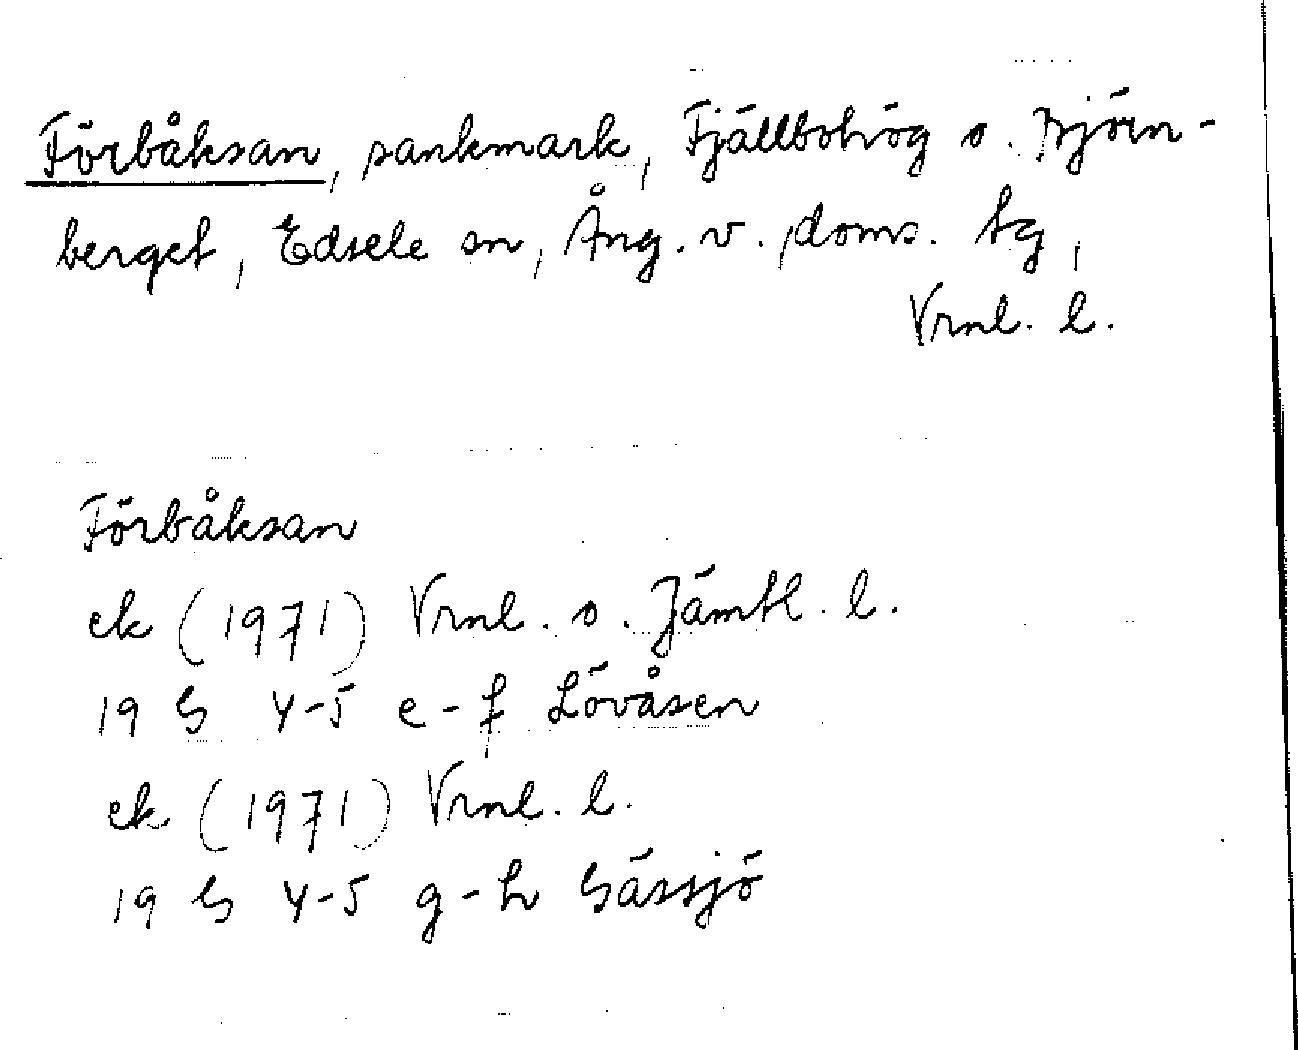 Förbåksan, sankmark, Fjällbohög o. Björn-
berget, Edsele sn, Ång. v. doms. tg,
Vrnl. l.
Förbåksan
ek (1971) Vrnl. o. Jämtl. l.
19 G 4-5 e-f Lövåsen
ek (1971) Vrnl. l.
19 G 4-5 g-h Gässjö